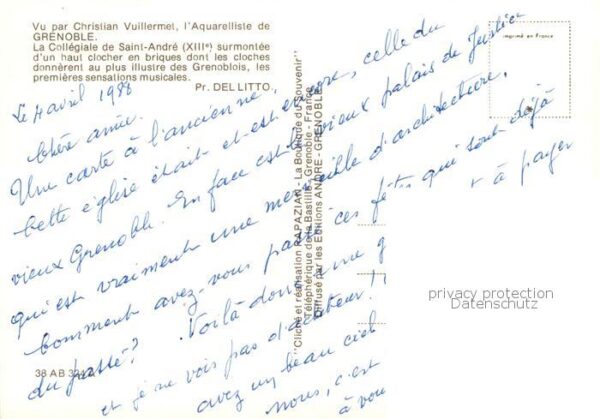 Vu par Christian Vuillermet, l'Aquarelliste de
GRENOBLE.
La Collégiale de Saint-André (XIIIe) surmontée
d'un haut clocher en briques dont les cloches
donnèrent au plus illustre des Grenoblois, les
premières sensations musicales.
Pr. DEL LITTO.
imprimé en France
Le 4 avril 1988
Chère amie.
Une carte à l'ancienne
Cette église était et est encore, celle du
vieux Grenoble. En face est le vieux palais de Justice
qui est vraiment une merveille d'architecture,
Comment avez-vous passé ces fêtes qui sont déjà
du passé? Voilà donc une
à payer
et je ne vois pas d'acheteur!
avez un beau ciel
nous, c'est
à vou
38 AB
"Cliché et réalisation RAPAZIAN - La Boutique du Souvenir"
Téléphérique de la Bastille - Grenoble - France
Diffusé par les Editions ANDRE - GRENOBLE
privacy protection
Datenschutz